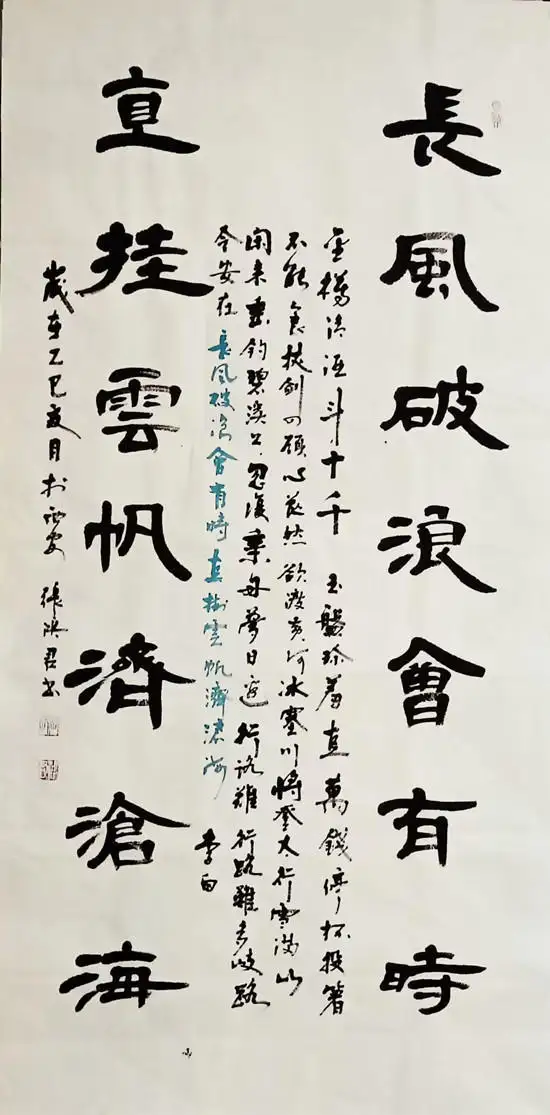 長風破浪會有時
直挂雲帆濟滄海
金樽清酒斗十千 玉盤珍羞直萬錢停杯投箸
不能食拔劍四顧心茫然欲渡黃河冰塞川將登太行雪滿山
閑來垂釣碧溪上忽復乘舟夢日邊 行路難 行路難多歧路
今安在長風破浪會有時直挂雲帆濟滄海
李白
歲在乙巳夏月於西安 張君書